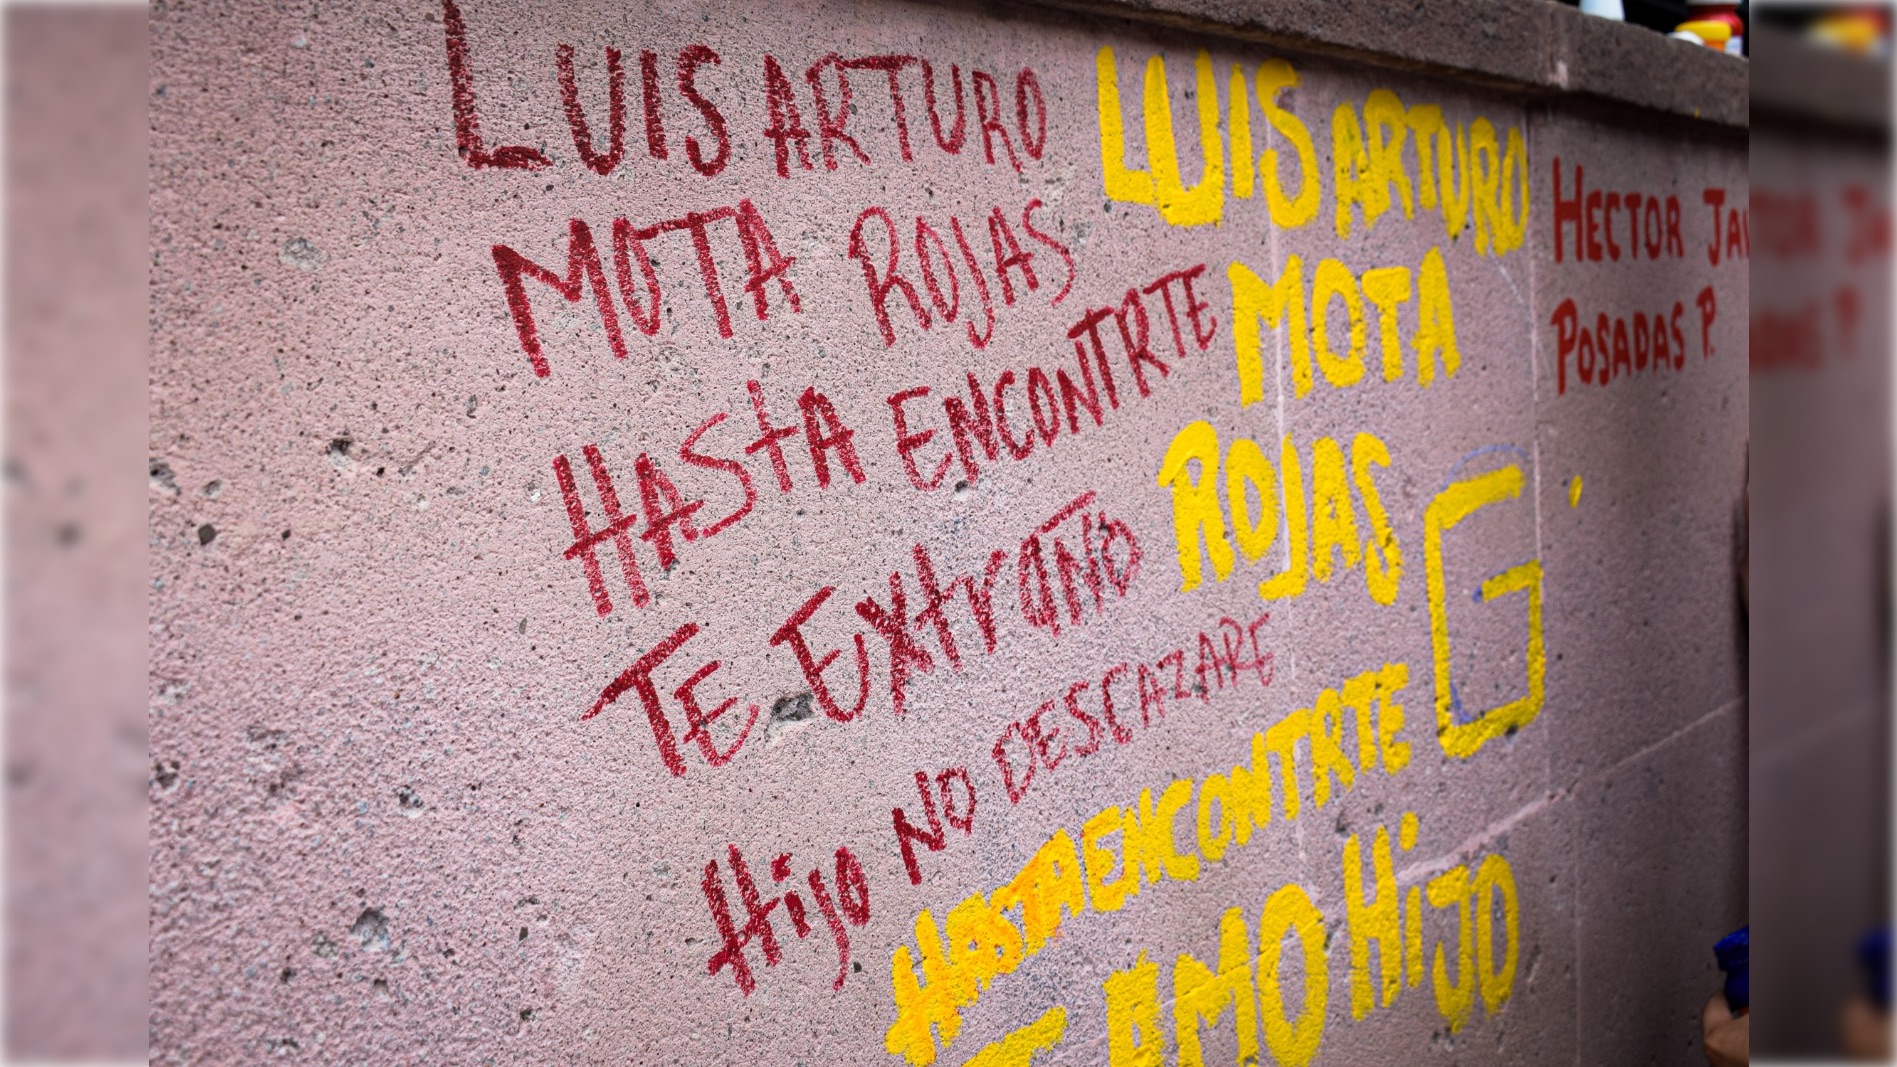 LUIS ARTURO
MOTA ROJAS
HASTA ENCONTRTE
TE EXTrañO
Hijo NO DESCAZARE
LUIS ARTURO
MOTA
ROJAS
G
HASTA ENCONTRTE
T AMO HiJO
HECTOR JAV
POSADAS P.